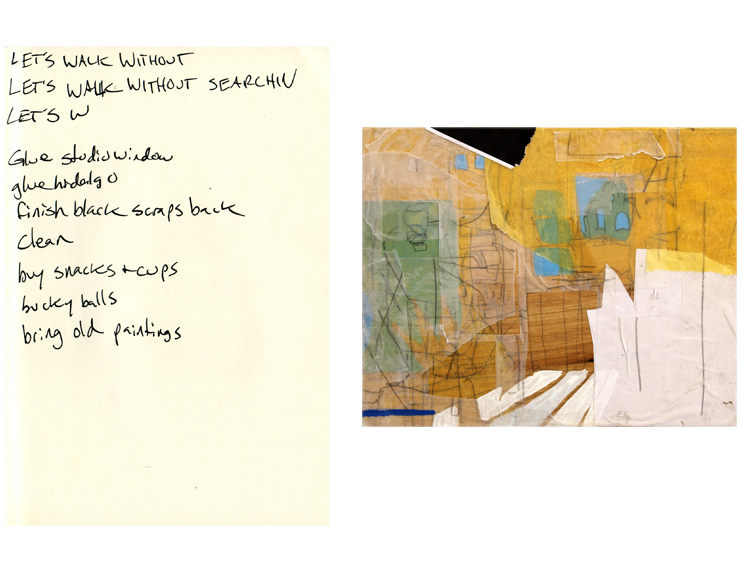 LET'S WALK WITHOUT
LET'S WALK WITHOUT SEARCHIN
LET'S W
Glue studio window
glue hidalgo
finish black scraps back
clean
buy snacks + cups
bucky balls
bring old paintings